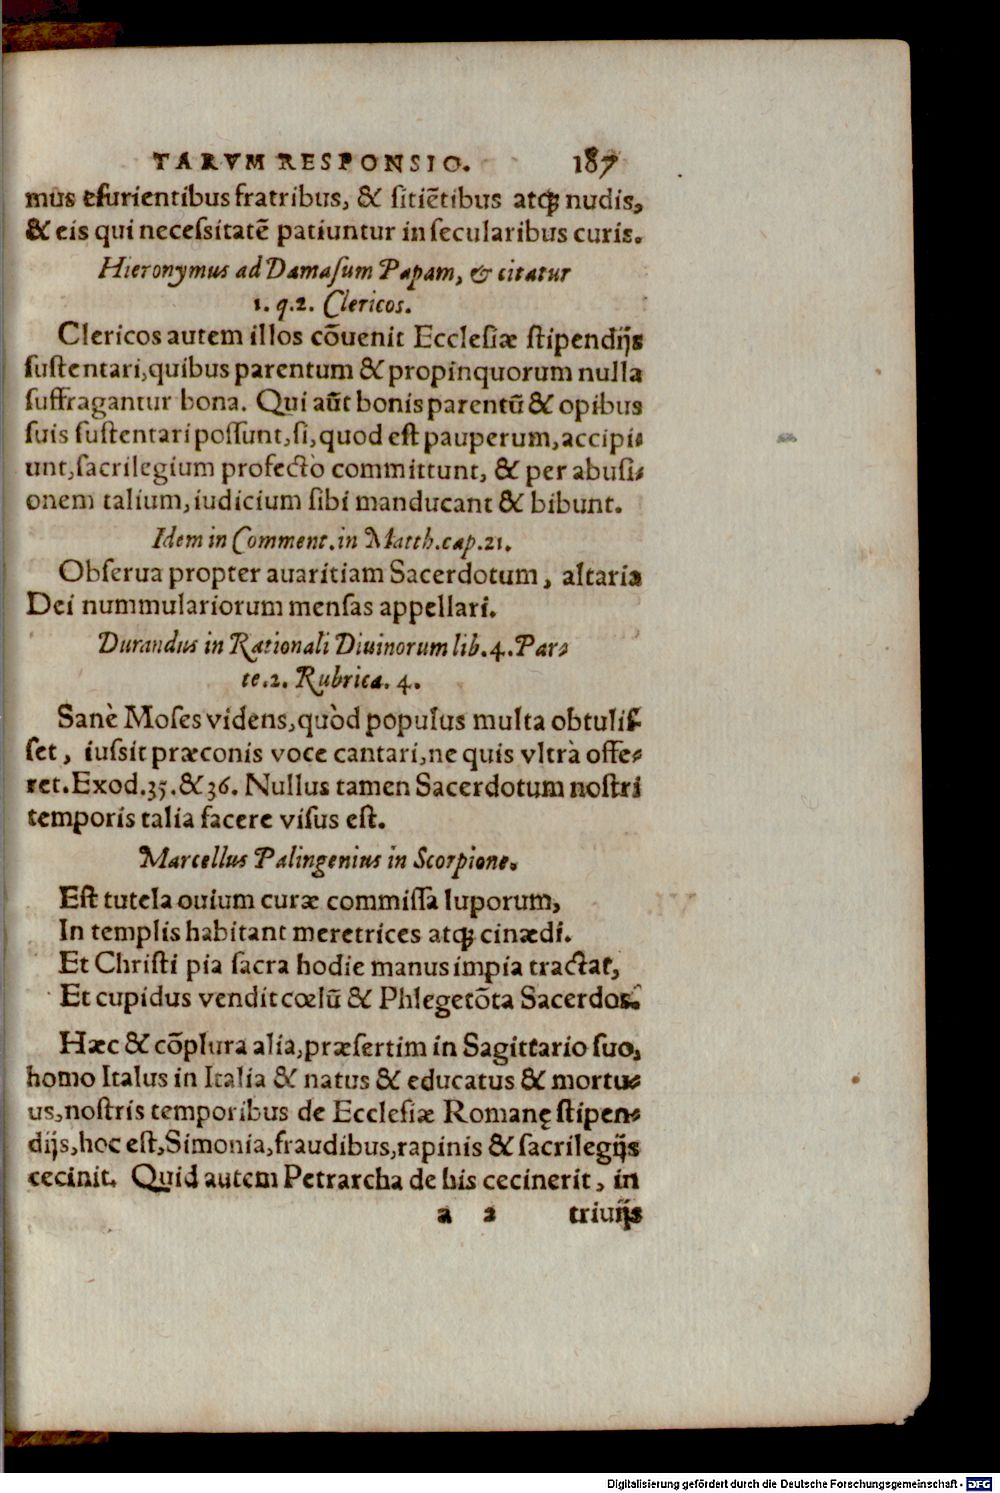 TARVM RESPONSIO. 187
mus esurientibus fratribus, & sitiẽtibus atq́ꝫ nudis,
& eis qui necessitatẽ patiuntur in secularibus curis.
Hieronymus ad Damasum Papam, & citatur
1. q.2. Clericos.
Clericos autem illos cõuenit Ecclesiæ stipendijs
sustentari, quibus parentum & propinquorum nulla
suffragantur bona. Qui aũt bonis parentũ & opibus
suis sustentari possunt, si, quod est pauperum, accipi-
unt, sacrilegium profectò committunt, & per abusi-
onem talium, iudicium sibi manducant & bibunt.
Idem in Comment. in Matth.cap.21.
Obserua propter auaritiam Sacerdotum, altaria
Dei nummulariorum mensas appellari.
Durandus in Rationali Diuinorum lib.4. Par-
te.2. Rubrica. 4.
Sanè Moses videns, quòd populus multa obtulis-
set, iussit præconis voce cantari, ne quis vltrà offe-
ret. Exod.35.&36. Nullus tamen Sacerdotum nostri
temporis talia facere visus est.
Marcellus Palingenius in Scorpione.
Est tutela ouium curæ commissa luporum,
In templis habitant meretrices atq́ꝫ cinædi.
Et Christi pia sacra hodie manus impia tractat,
Et cupidus vendit cœlũ & Phlegetõta Sacerdos.
Hæc & cõplura alia, præsertim in Sagittario suo,
homo Italus in Italia & natus & educatus & mortu-
us, nostris temporibus de Ecclesiæ Romanę stipen-
dijs, hoc est, Simonia, fraudibus, rapinis & sacrilegijs
cecinit. Quid autem Petrarcha de his cecinerit, in
a 2 triuijs
Digitalisierung gefördert durch die Deutsche Forschungsgemeinschaft - DFG